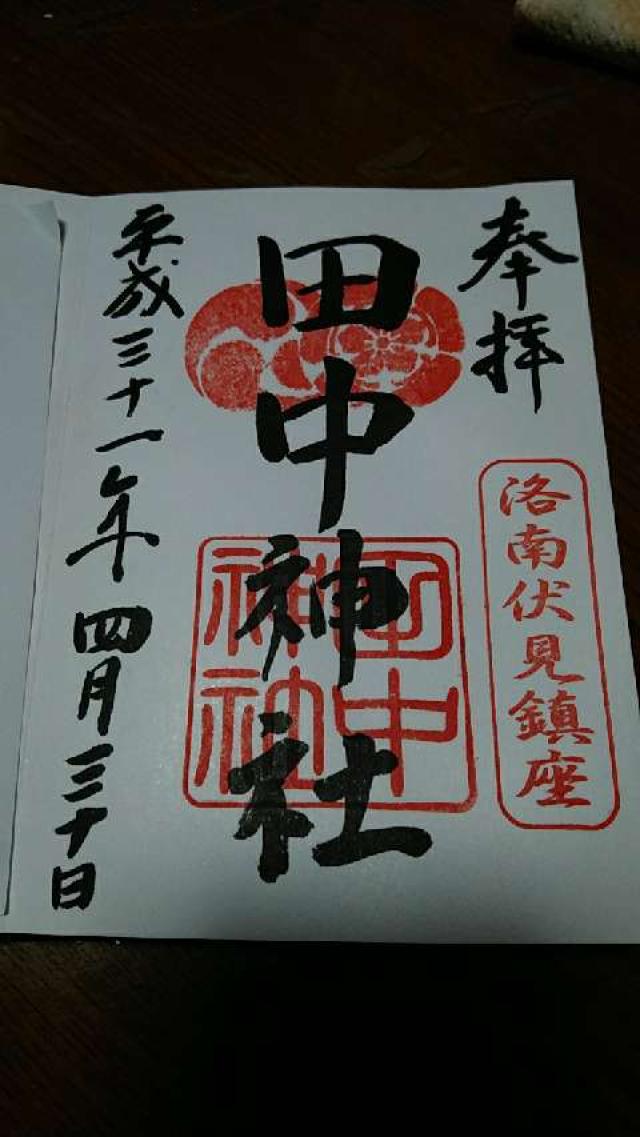 奉拝
洛南伏見鎮座
田中神社
田中神社
平成三十一年四月三十日